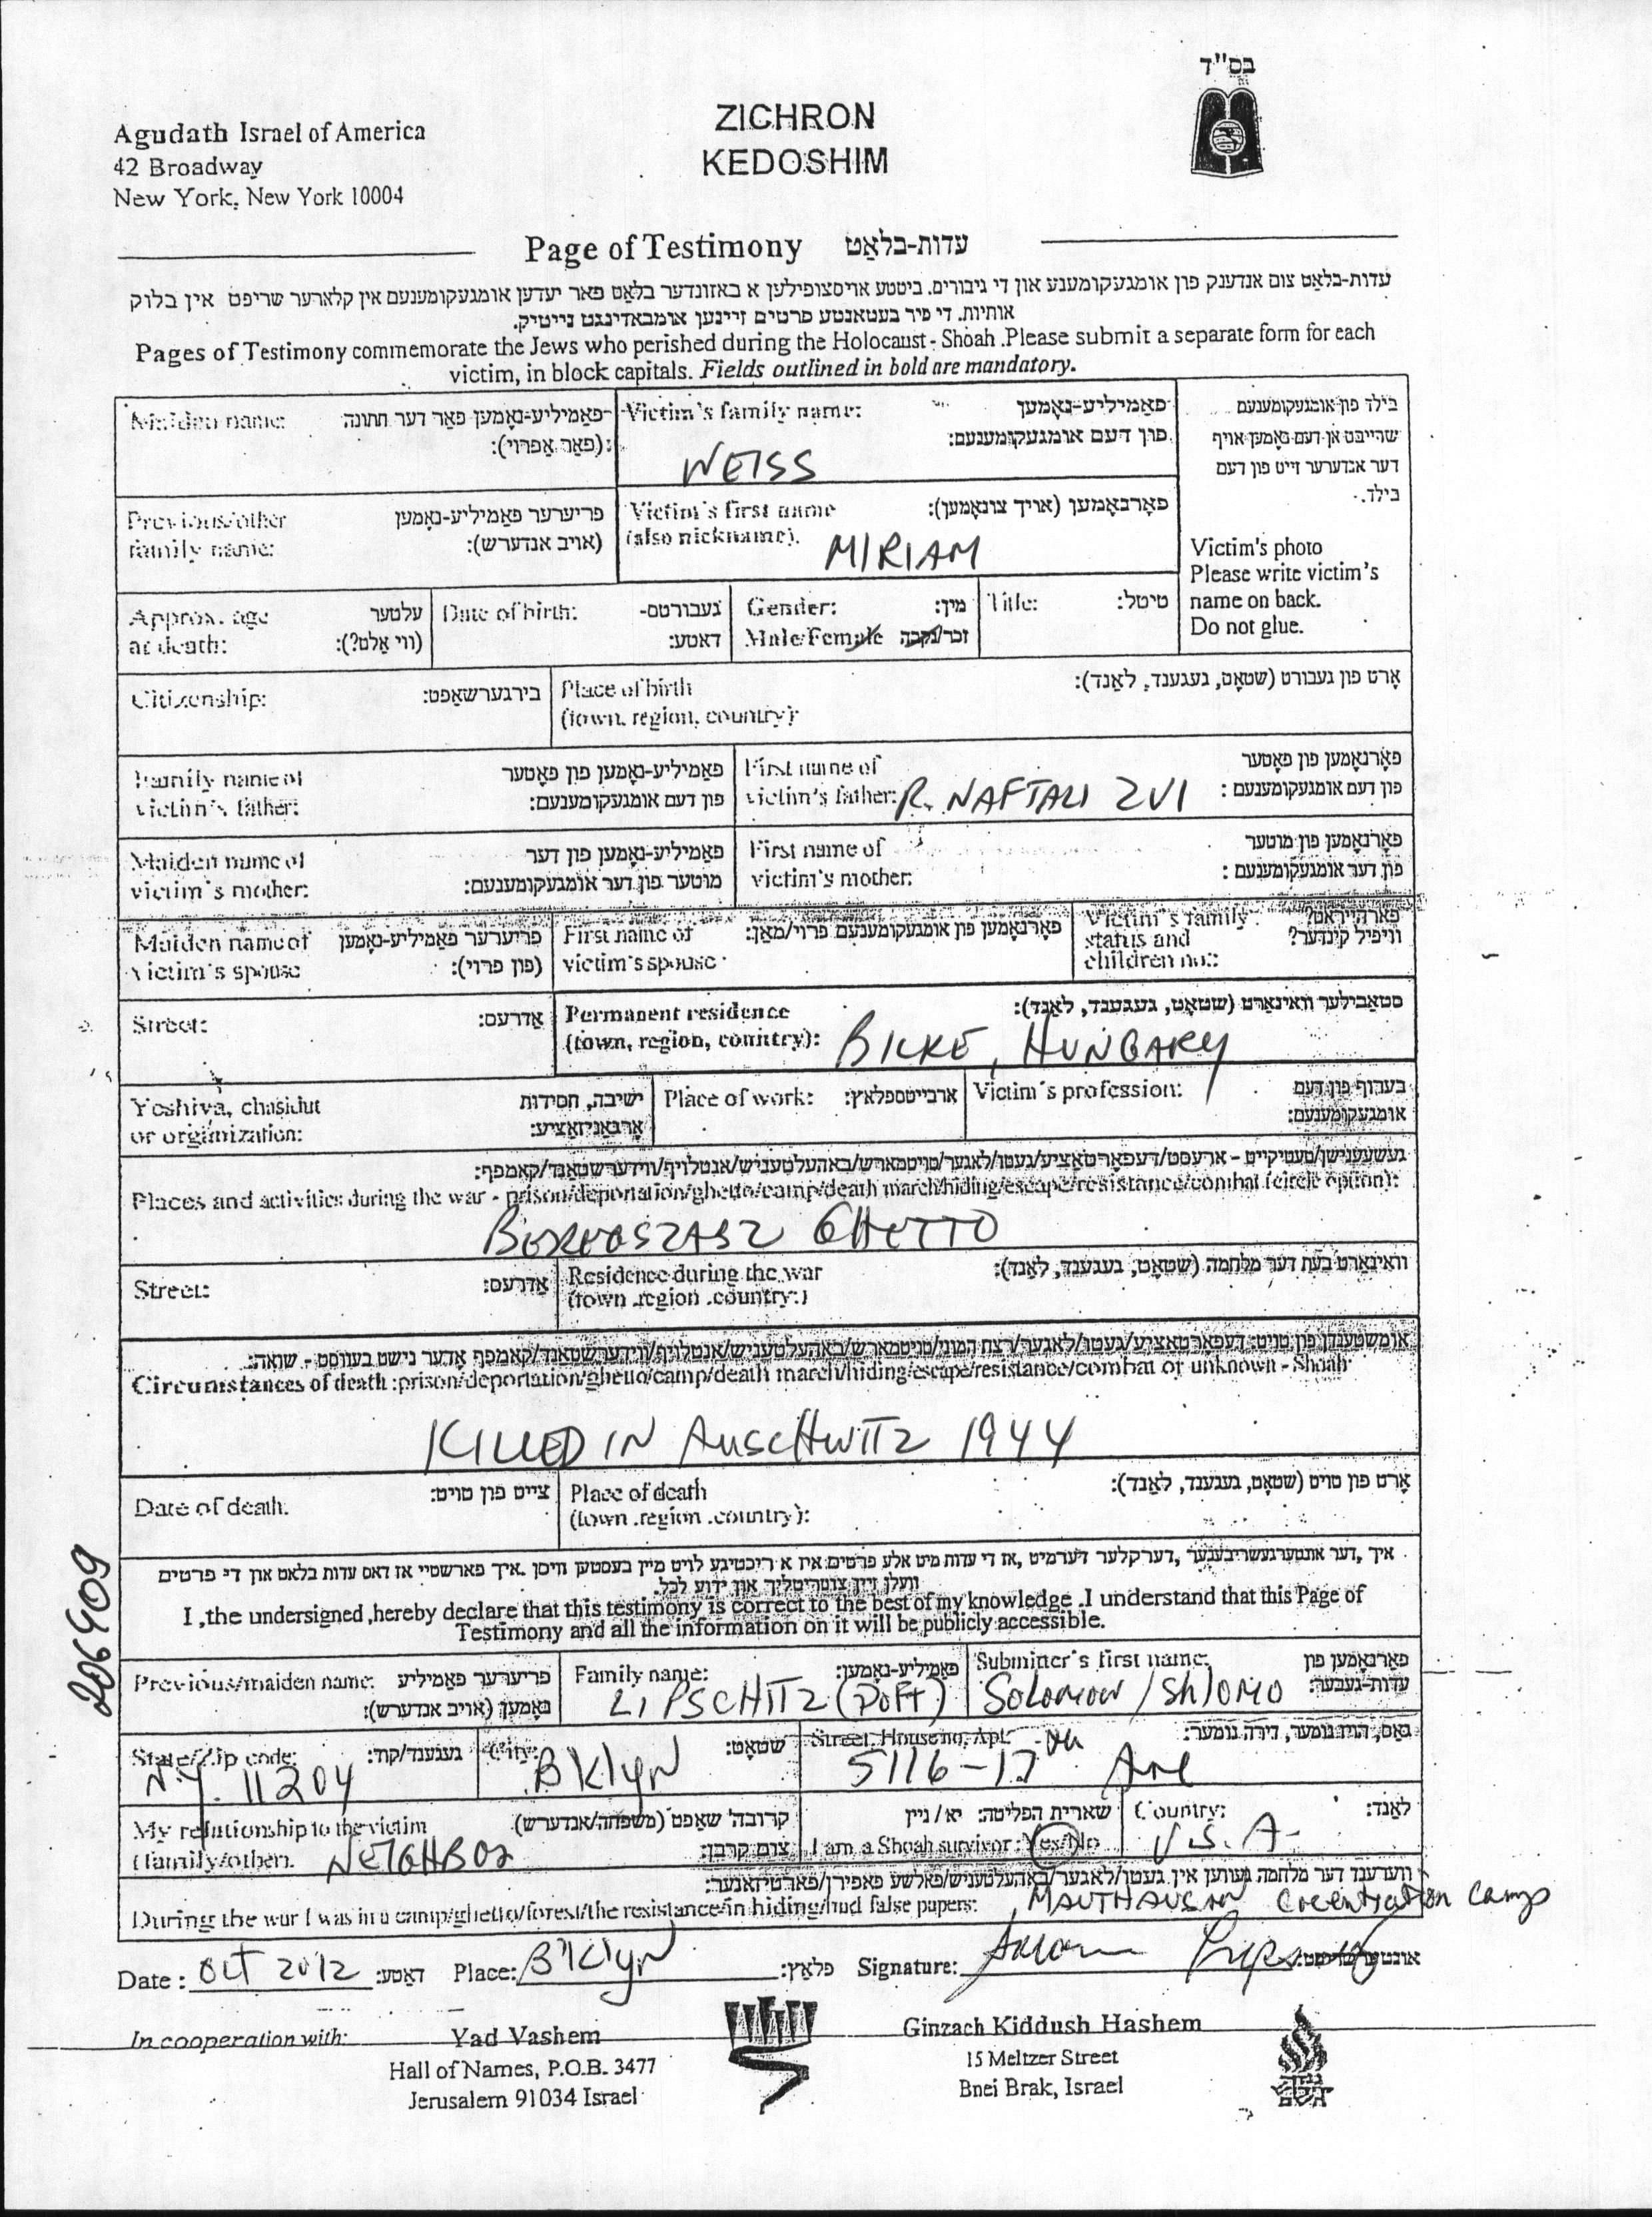 בס"ד
Agudath Israel of America
42 Broadway
New York, New York 10004
ZICHRON
KEDOSHIM
Page of Testimony עדות-בלאַט
עדות-בלאַט צום אנדענק פון אומגעקומענע און די גיבורים. ביטע אויסצופילען א באזונדער בלאַט פאר יעדען אומגעקומענעם אין קלאָרער שריפט אין בלוק
אותיות. די פיר בעטאָנטע פרטים זיינען אומבאדינגט נייטיק.
Pages of Testimony commemorate the Jews who perished during the Holocaust - Shoah .Please submit a separate form for each
victim, in block capitals. Fields outlined in bold are mandatory.
Maiden name: פאַמיליע-נאָמען פאַר דער חתונה
(פאַר אַפרוי):
Victim's family name: פאַמיליע-נאָמען
פון דעם אומגעקומענעם:
WEISS
בילד פון אומגעקומענעם
שרייבט אן דעם נאָמען אויף
דער אנדערער זייט פון דעם
בילד.
Victim's photo
Please write victim's
name on back.
Do not glue.
Previous/other פריערער פאַמיליע-נאָמען
family name: (אויב אנדערש):
Victim's first name פאָרנאָמען (אויך צונאָמען):
(also nickname).
MIRIAM
Approx. age עלטער
at death: (ווי אַלט?):
Date of birth: געבורטס-
דאַטע:
Gender: מין:
Male/Female זכר/נקבה
Title: טיטל:
Citizenship: בירגערשאַפט:
Place of birth אָרט פון געבורט (שטאָט, געגענד, לאַנד):
(town, region, country):
Family name of פאַמיליע-נאָמען פון פאָטער
victim's father: פון דעם אומגעקומענעם:
First name of פאָרנאָמען פון פאָטער
victim's father: R. NAFTALI ZVI פון דעם אומגעקומענעם:
Maiden name of פאַמיליע-נאָמען פון דער
victim's mother: מוטער פון דער אומגעקומענעם:
First name of פאָרנאָמען פון מוטער
victim's mother: פון דער אומגעקומענעם:
Maiden name of פריערער פאַמיליע-נאָמען
victim's spouse (פון פרוי):
First name of פאָרנאָמען פון אומגעקומענעם פרוי/מאַן:
victim's spouse
Victim's family פארהייראט?
status and וויפיל קינדער?
children no.:
Street: אַדרעס:
Permanent residence סטאַבילער וואוינאָרט (שטאָט, געגענד, לאַנד):
(town, region, country): BILKE, HUNGARY
Yeshiva, chasidut ישיבה, חסידות
or organization: אָרגאַניזאַציע:
Place of work: ארבייטספלאץ:
Victim's profession: בערוף פון דעם
אומגעקומענעם:
געשעענישן/טעטיקייט - ארעסט/דעפאָרטאַציע/געטו/לאגער/טויטמארש/באהעלטעניש/אנטלויף/ווידערשטאַנד/קאמפף:
Places and activities during the war - prison/deportation/ghetto/camp/death march/hiding/escape/resistance/combat (circle option):
BEREGSZASZ GHETTO
Street: אַדרעס:
Residence during the war וואוינאָרט בעת דער מלחמה (שטאָט, געגענד, לאַנד):
(town .region .country:)
אומשטענדן פון טויט: דעפאָרטאַציע/געטו/לאגער/רצח המוני/טויטמארש/באהעלטעניש/אנטלויף/ווידערשטאַנד/קאמפף אָדער נישט בעוואוסט - שואה:
Circumstances of death :prison/deportation/ghetto/camp/death march/hiding/escape/resistance/combat or unknown - Shoah
KILLED IN AUSCHWITZ 1944
Date of death: צייט פון טויט:
Place of death אָרט פון טויט (שטאָט, געגענד, לאַנד):
(town .region .country):
206409
איך ,דער אונטערגעשריבענער ,דערקלער דערמיט ,אז די עדות מיט אלע פרטים איז א ריכטיגע לויט מיין בעסטען וויסן .איך פארשטיי אז דאס עדות בלאט און די פרטים
וועלן זיין צוטריטליך און ידוע לכל.
I ,the undersigned ,hereby declare that this testimony is correct to the best of my knowledge .I understand that this Page of
Testimony and all the information on it will be publicly accessible.
Previous/maiden name: פריערער פאַמיליע
נאָמען (אויב אנדערש):
Family name: פאַמיליע-נאָמען:
LIPSCHITZ (POFT)
Submitter's first name: פאָרנאָמען פון
עדות-געבער:
Solomon / Shlomo
State/Zip code: געגענד/קוד:
N.Y. 11204
City: שטאָט:
BKlyn
Street, House no, Apt: גאס, הויז נומער, דירה נומער:
5116-17th Ave
My relationship to the victim קרובה'שאַפט (משפחה/אנדערש)
(family/other). NEIGHBOR צום קרבן:
שארית הפליטה: יא/ניין
I am a Shoah survivor: Yes/No
Country: לאַנד:
U.S.A.
ווערענד דער מלחמה געווען אין געטו/לאגער/באהעלטעניש/פאלשע פאפירן/פארטיזאנער:
During the war I was in a camp/ghetto/forest/the resistance/in hiding/had false papers: MAUTHAUSAN Concentration Camp
Date: Oct 2012 דאַטע: Place: B'Klyn פלאַץ: Signature:
In cooperation with: Yad Vashem
Hall of Names, P.O.B. 3477
Jerusalem 91034 Israel
Ginzach Kiddush Hashem
15 Meltzer Street
Bnei Brak, Israel